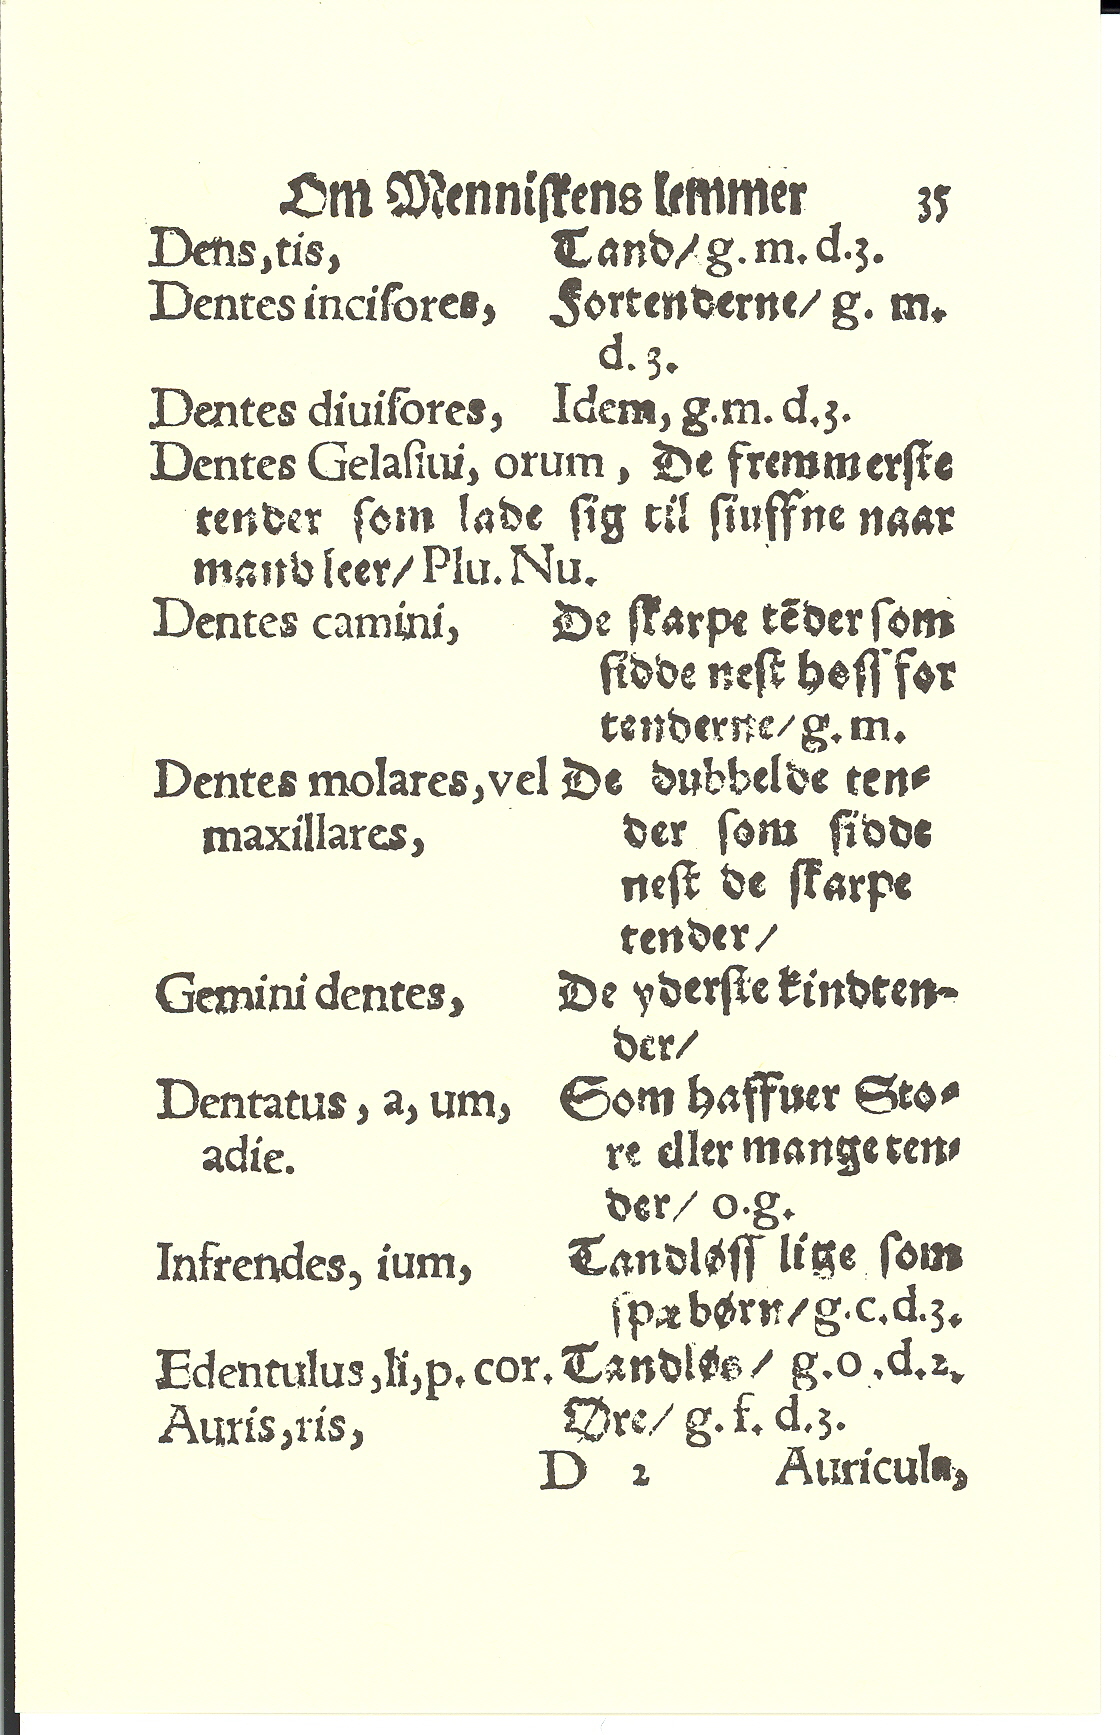 Om Menniſkens lemmer 35
Dens,tis, Tand/ g.m.d.3.
Dentes inciſores, Fortenderne/ g. m.
d. 3.
Dentes diuiſores, Idem, g.m.d.3.
Dentes Gelaſiui, orum, De fremmerſte
tender ſom lade ſig til ſiuffne naar
mand leer/ Plu. Nu.
Dentes camini, De ſkarpe tēder ſom
ſidde neſt hoſſ for
tenderne/ g.m.
Dentes molares,vel De dubbelde ten-
maxillares, der ſom ſidde
neſt de ſkarpe
tender/
Gemini dentes, De yderſte kindten-
der/
Dentatus, a, um, Som haffuer Sto-
adie. re eller mange ten-
der/ o.g.
Infrendes, ium, Tandløſſ lige ſom
ſpæbørn/ g.c.d.3.
Edentulus,li,p. cor. Tandløs/ g.o.d.2.
Auris,ris, Øre/ g. f. d.3.
D 2 Auricula,